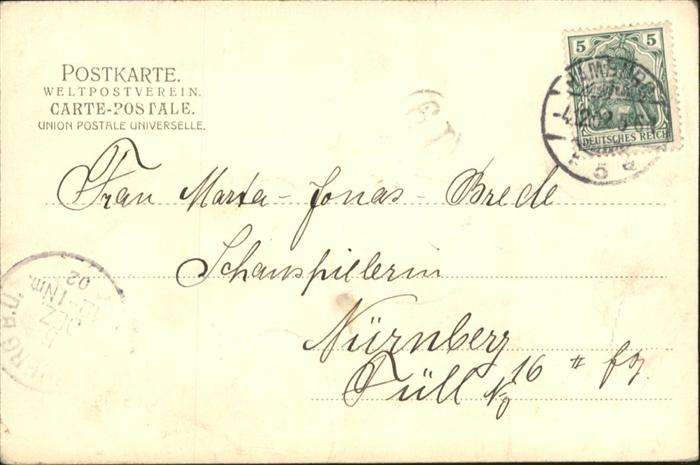 POSTKARTE.
WELTPOSTVEREIN.
CARTE-POSTALE.
UNION POSTALE UNIVERSELLE.
5 5
DEUTSCHES REICH
HAMBURG
4.12.02. 5-6
5
Frau Marta-Jonas-Brede
Schauspielerin
Nürnberg
Füll No 16 II
DEZ
Nm.
02